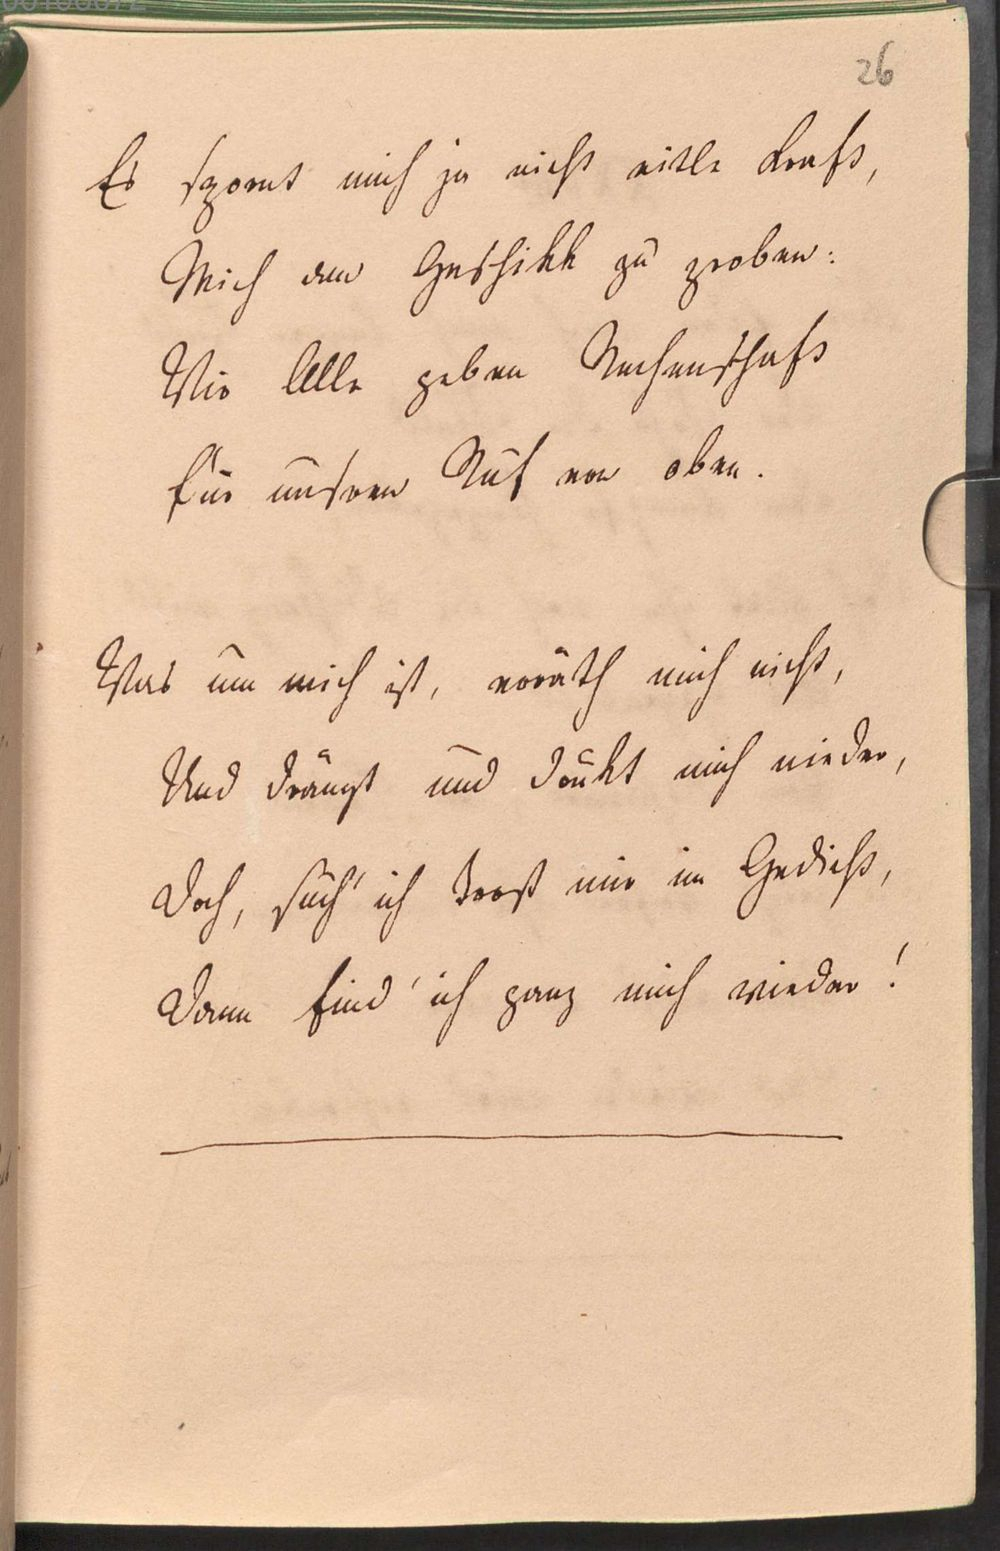 26
Es spornt mich ja nicht eitle Kraft,
Mich am Geschikk zu proben:
Wir Alle geben Rechenschaft
Für unsren Ruf von oben.
Was um mich ist, verräth mich nicht,
Und drängt und drükt mich nieder,
Doch, such' ich Trost mir im Gedicht,
Dann find' ich ganz mich wieder!